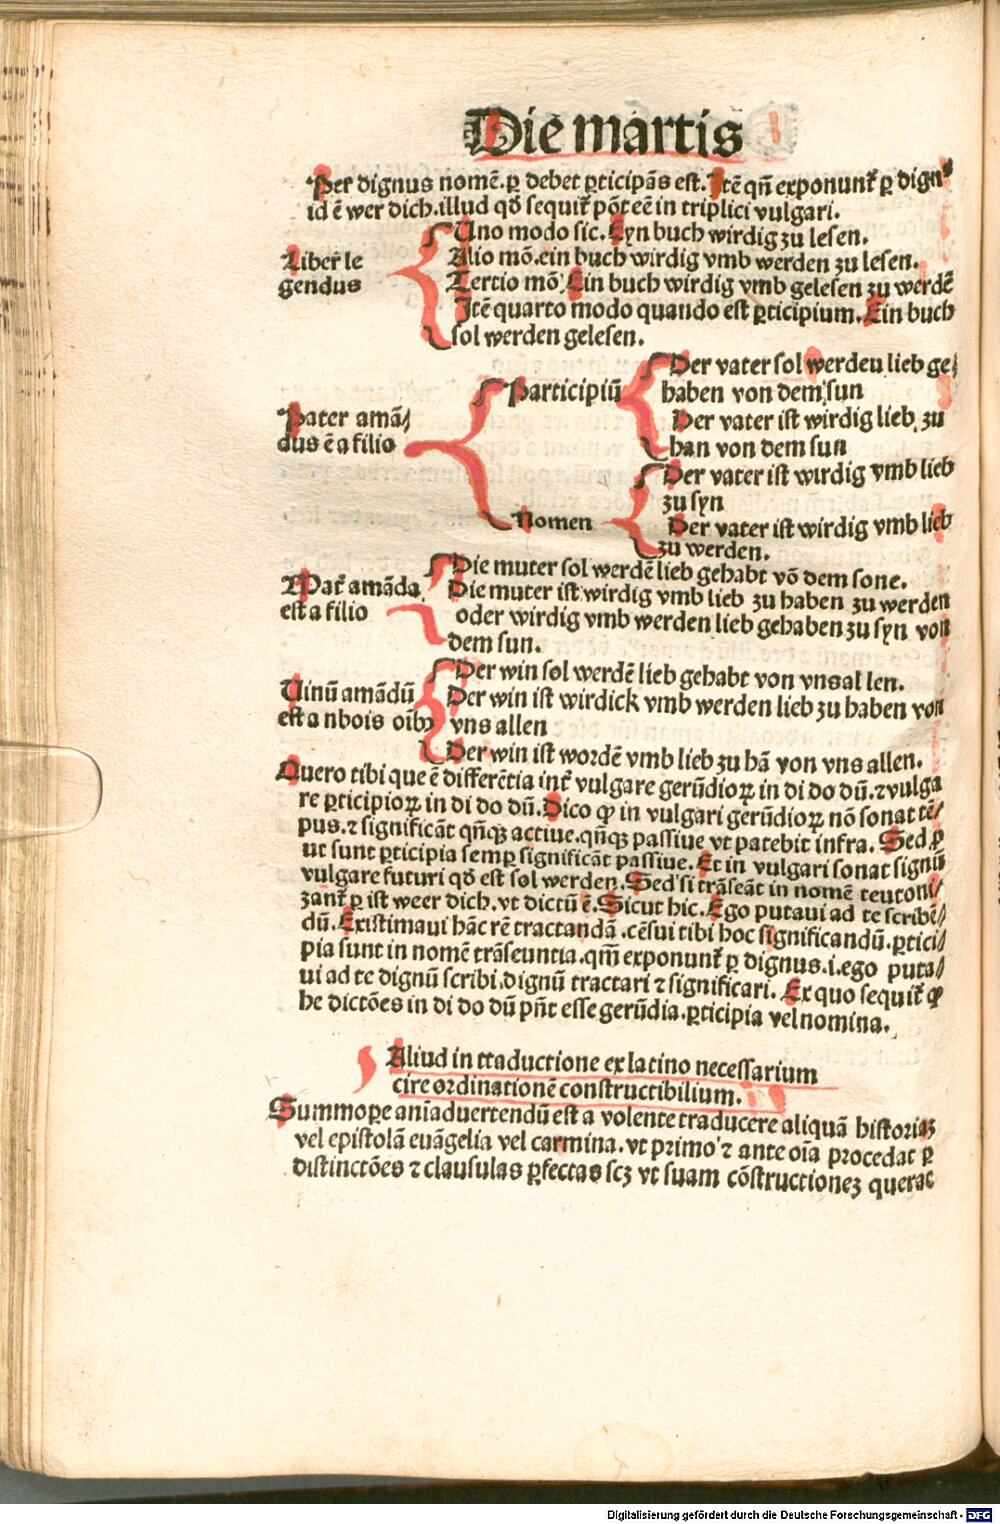 Die martis
Per dignus nomē. ꝑ debet ꝑticipās est. Itē qn̄ exponunt᷑ ꝑ dignꝰ
id ē wer dich. illud qð sequit᷑ pōt eē in triplici vulgari.
Liber le
gendus
Uno modo sic. Eyn buch wirdig zu lesen.
Alio mō. ein buch wirdig vmb werden zu lesen.
Tertio mō. Ein buch wirdig vmb gelesen zu werdē
Itē quarto modo quando est ꝑticipium. Ein buch
sol werden gelesen.
Pater amā/
dus ē a filio
Participiū
Der vater sol werdeu lieb ge/
haben von dem sun
Der vater ist wirdig lieb zu
han von dem sun
Nomen
Der vater ist wirdig vmb lieb
zu syn
Der vater ist wirdig vmb lieb
zu werden.
Mat᷑ amāda
est a filio
Die muter sol werdē lieb gehabt vō dem sone.
Die muter ist wirdig vmb lieb zu haben zu werden
oder wirdig vmb werden lieb gehaben zu syn von
dem sun.
Uinū amādū
est a nbois oībꝰ
Der win sol werdē lieb gehabt von vnsal len.
Der win ist wirdick vmb werden lieb zu haben von
vns allen
Der win ist wordē vmb lieb zu hā von vns allen.
Quero tibi que ē differētia int᷑ vulgare gerūdioꝝ in di do dū. ⁊ vulga
re ꝑticipioꝝ in di do dū. Dico ꝙ in vulgari gerūdioꝝ nō sonat tē/
pus. ⁊ significāt qn̄qꝫ actiue. qn̄qꝫ passiue vt patebit infra. Sed ꝑ
ut sunt ꝑticipia semꝑ significāt passiue. Et in vulgari sonat signū
vulgare futuri qð est sol werden. Sed si trāseāt in nomē teutoni/
zant᷑ ꝑ ist weer dich. vt dictū ē. Sicut hic. Ego putaui ad te scribē/
dū. Existimaui hāc rē tractandā. cēsui tibi hoc significandū. ꝑtici/
pia sunt in nomē trāseuntia. qm̄ exponunt᷑ ꝑ dignus. i. ego puta/
ui ad te dignū scribi. dignū tractari ⁊ significari. Ex quo sequit᷑ ꝙ
he dictōes in di do dū pn̄t esse gerūdia. ꝑticipia vel nomina.
Aliud in traductione ex latino necessarium
cire ordinationē constructibilium.
Summoꝑe aniaduertendū est a volente traducere aliquā historiaꝫ
vel epistolā euāgelia vel carmina. vt primo ⁊ ante oīa procedat ꝑ
distinctōes ⁊ clausulas ꝑfectas scꝫ vt suam cōstructionеꝫ querat
Digitalisierung gefördert durch die Deutsche Forschungsgemeinschaft - DFG